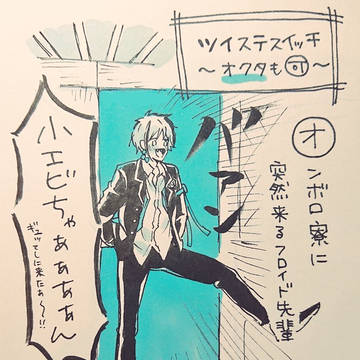 ツイステスイッチ
～オクタも㊢～
オンボロ寮に
突然来るフロイド先輩
バァン
小エビちゃぁぁぁぁん
ギュッてしに来たぁ～!!